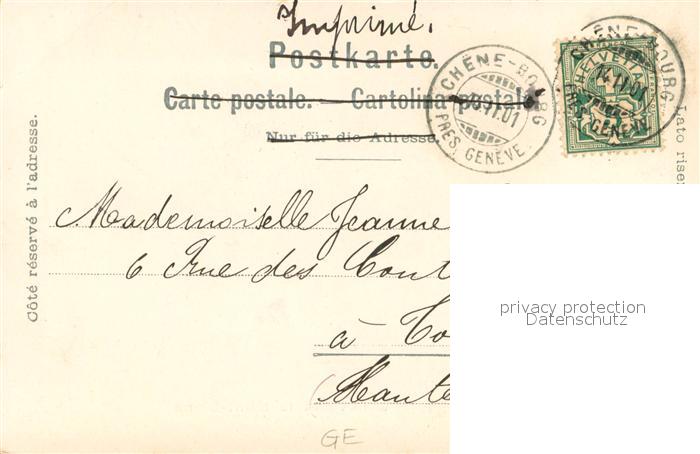 Imprimé.
Postkarte.
Carte postale. — Cartolina postale.
Nur für die Adresse.
CHÊNE-BOURG
PRÈS GENÈVE
CHÊNE-BOURG
14.II.01
PRÈS GENÈVE
HELVETIA
Côté réservé à l'adresse.
Lato riser
Mademoiselle Jeanne
6 Rue des Cont
à To
Haute
privacy protection
Datenschutz
GE